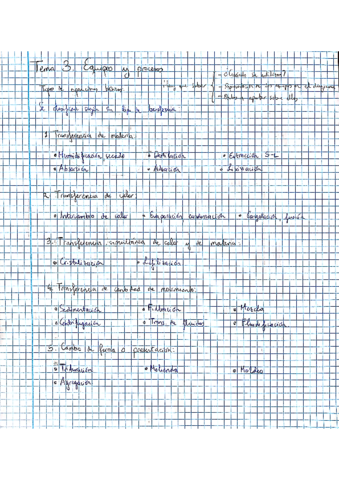 Tema 3. Equipos y procesos
Tipos de operaciones básicas
Hay que saber
- ¿Cuándo se utilizan?
- Representación de los equipos en el diagrama
- Poder o aportar sobre ellos
Se clasifican según su tipo de transferencia
1. Transferencia de materia.
• Humidificación, secado • Destilación • Extracción S-L
• Absorción • Adsorción • Lixiviación
2. Transferencia de calor
• Intercambio de calor • Evaporación, condensación • Congelación, fusión
3. Transferencia simultánea de calor y de materia.
• Cristalización • Liofilización
4. Transferencia de cantidad de movimiento.
• Sedimentación • Filtración • Mezcla
• Centrifugación • Trans. de fluidos • Fluidificación
5. Cambio de forma o presentación.
• Trituración • Molienda • Moldeo
• Agregación